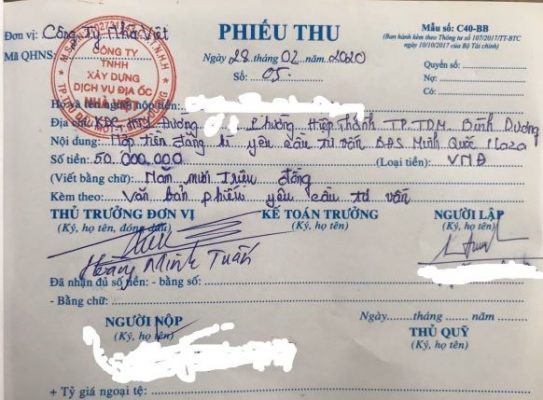 Đơn vị: Công Ty Nhà Việt
Mã QHNS:
PHIẾU THU
Ngày 28 tháng 02 năm 2020
Số: 05
Mẫu số: C40-BB
(Ban hành kèm theo Thông tư số 107/2017/TT-BTC
ngày 10/10/2017 của Bộ Tài chính)
Quyển số:
Nợ:
Có:
CÔNG TY
TNHH
XÂY DỰNG
DỊCH VỤ ĐỊA ỐC
NHÀ VIỆT
Họ và tên người nộp tiền:
Địa chỉ: KDC Phường Hiệp Thành TP.TDM Bình Dương
Nội dung: Nộp tiền đăng kí yêu cầu tư vấn BĐS Minh Quốc
Số tiền: 50.000.000 (Loại tiền): VNĐ
(Viết bằng chữ): Năm mươi Triệu đồng
Kèm theo: Văn bản phiếu yêu cầu tư vấn
THỦ TRƯỞNG ĐƠN VỊ KẾ TOÁN TRƯỞNG NGƯỜI LẬP
(Ký, họ tên, đóng dấu) (Ký, họ tên) (Ký, họ tên)
Hoàng Minh Tuấn
Đã nhận đủ số tiền: - bằng số:
- Bằng chữ:
Ngày tháng năm
NGƯỜI NỘP THỦ QUỸ
(Ký, họ tên) (Ký, họ tên)
+ Tỷ giá ngoại tệ: